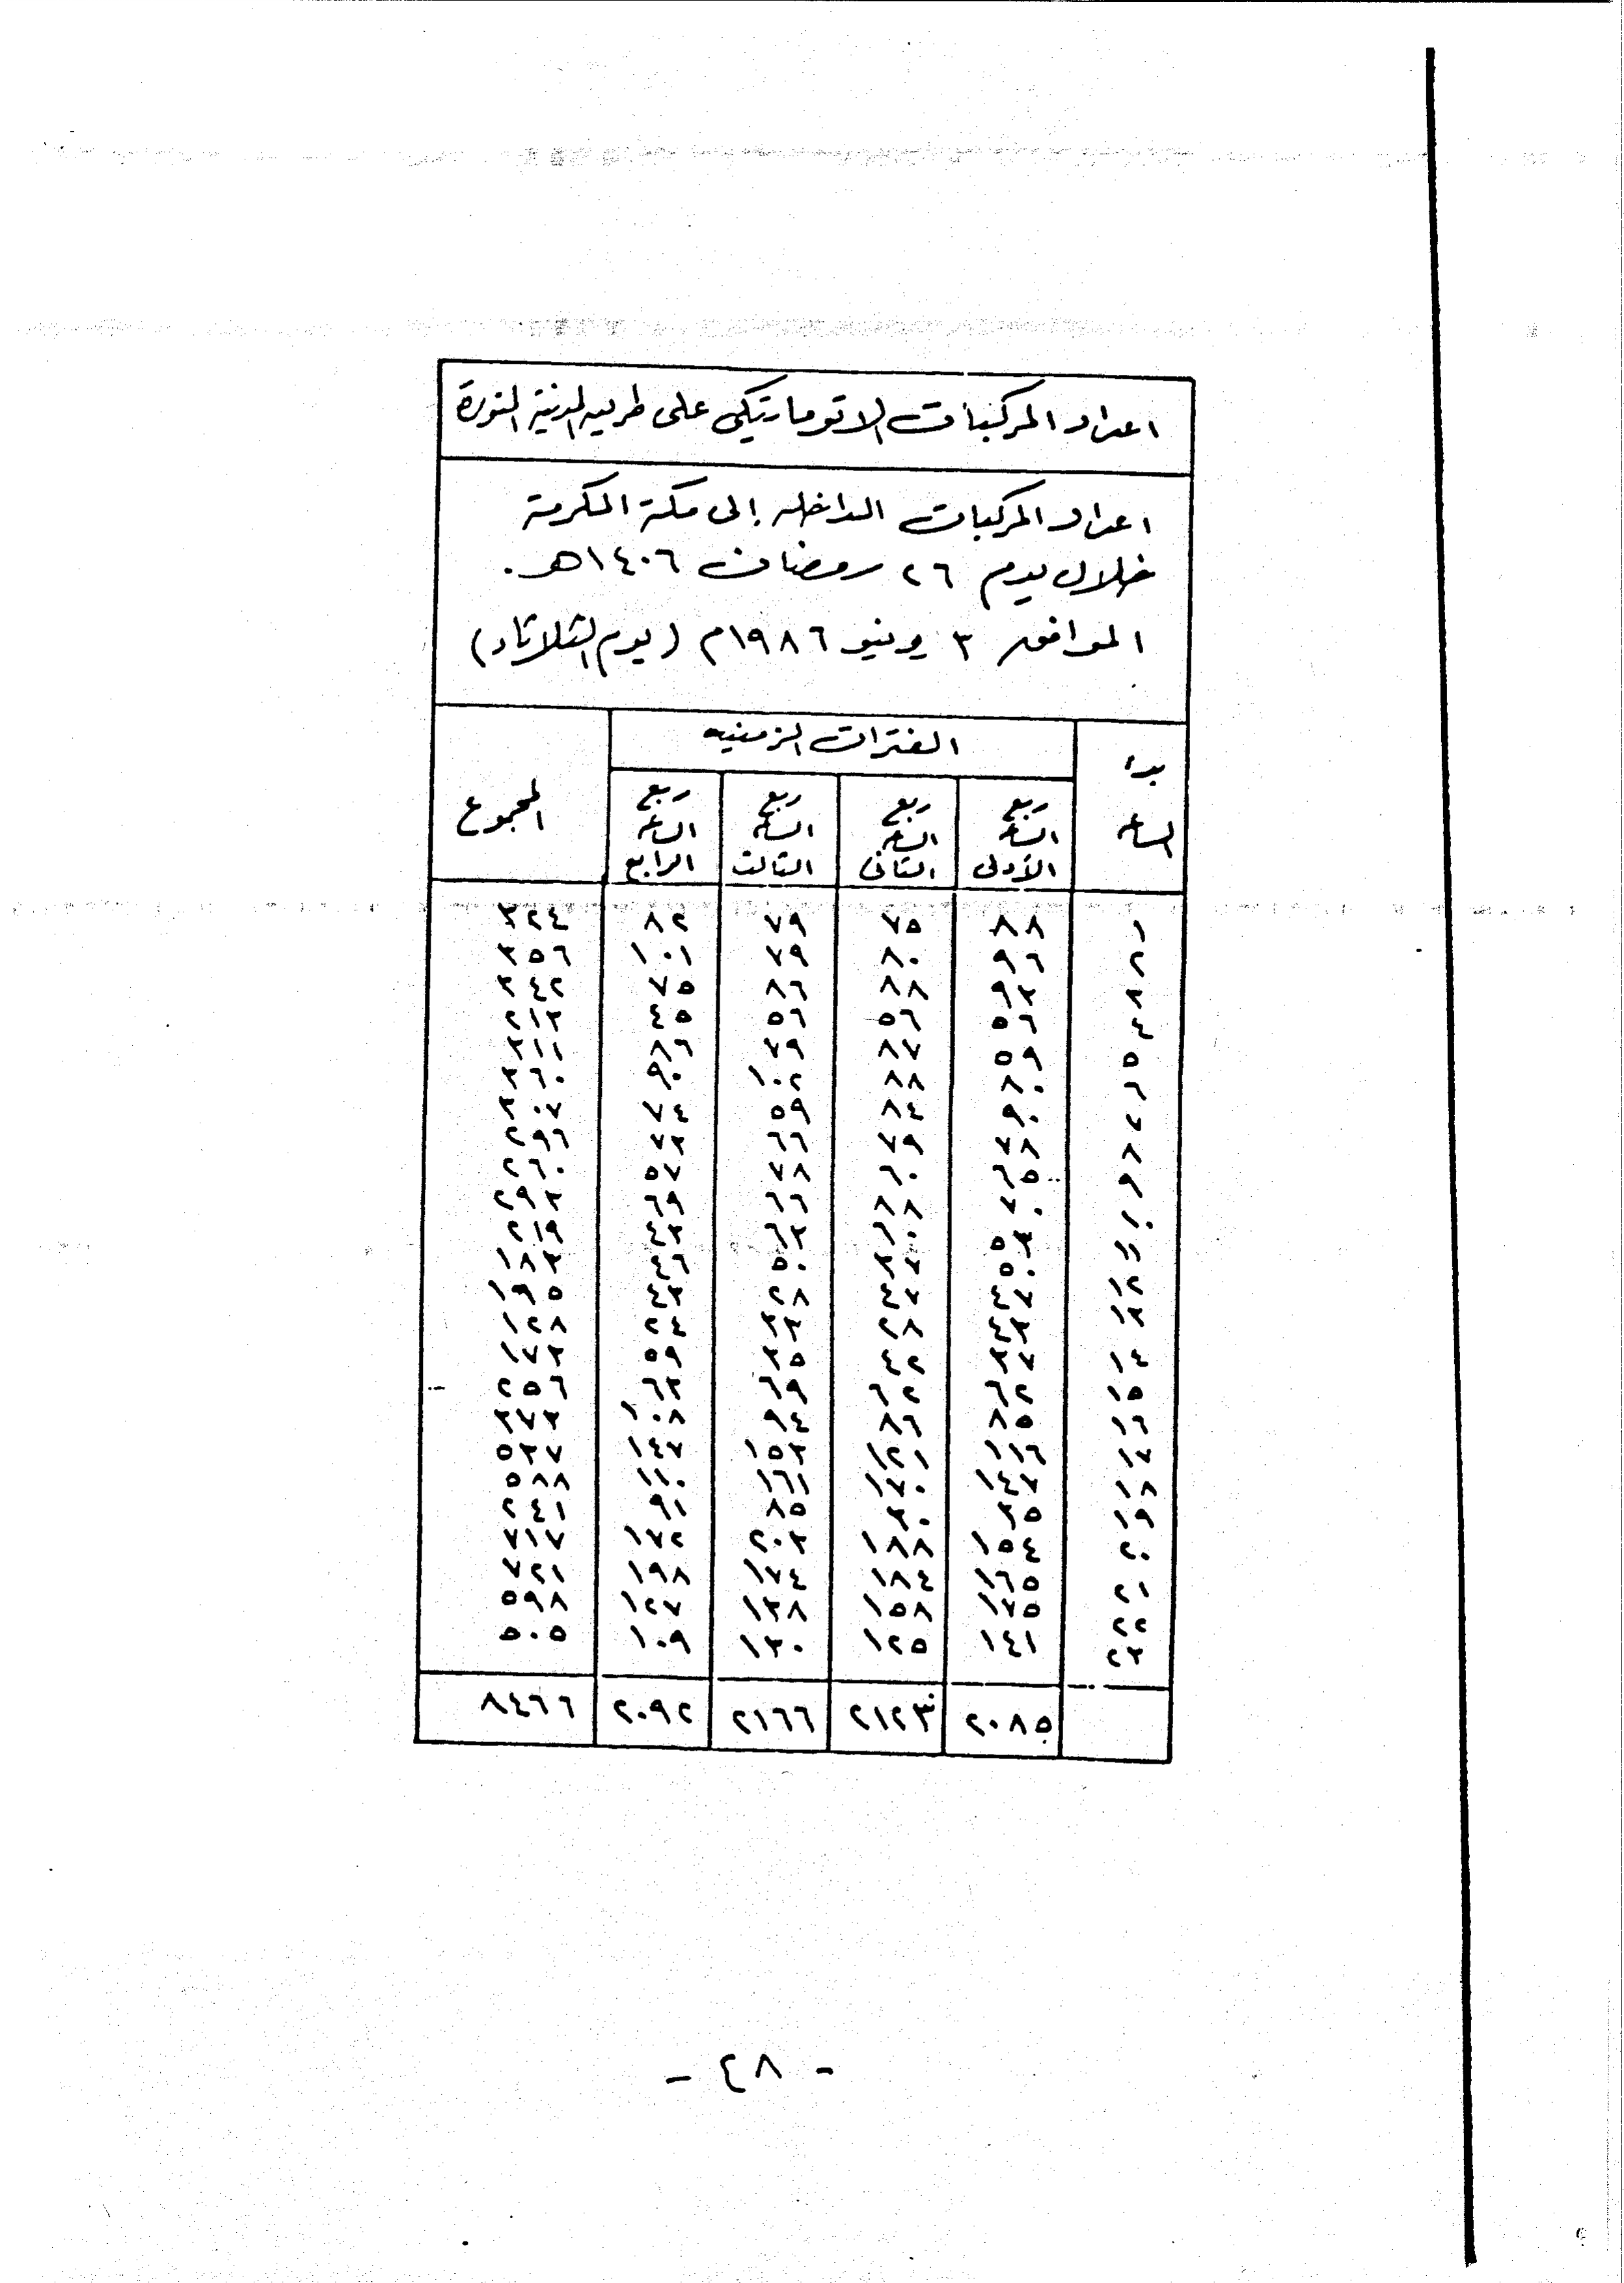 اعداد المركبات الاتوماتيكي على طريق المدينة المنورة
اعداد المركبات الداخله إلى مكة المكرمة
خلال يوم ٢٦ رمضان ١٤٠٦هـ.
الموافق ٣ يونيو ١٩٨٦م (يوم الثلاثاء)
بدء الساعه
الفترات الزمنيه
المجموع
ربع الساعه الأولى
ربع الساعه الثاني
ربع الساعه الثالث
ربع الساعه الرابع
١ ٨٨ ٧٥ ٧٩ ٨٢ ٣٢٤
٢ ٩٦ ٨٠ ٧٩ ١٠١ ٣٥٦
٣ ٩٣ ٨٨ ٨٦ ٧٥ ٣٤٢
٤ ٥٦ ٥٦ ٥٦ ٤٥ ٢١٣
٥ ٥٩ ٨٧ ٧٩ ٨٦ ٣١١
٦ ٨٠ ٨٨ ١٠٢ ٩٠ ٣٦٠
٧ ٩٠ ٨٤ ٥٩ ٧٤ ٣٠٧
٨ ٧٨ ٧٩ ٦٦ ٧٣ ٢٩٦
٩ ٦٥ ٦٠ ٧٨ ٥٧ ٢٦٠
١٠ ٧٠ ٨٨ ٦٦ ٦٩ ٢٩٣
١١ ٥٣ ٦٠ ٦٣ ٤٣ ٢١٩
١٢ ٥٠ ٣٧ ٥٠ ٤٦ ١٨٣
١٣ ٤٧ ٤٧ ٢٨ ٤٣ ١٩٥
٤٣ ٢٨ ٣٣ ٢٤ ١٢٨
١٤ ٣٧ ٤٢ ٣٥ ٥٩ ١٧٣
١٥ ٦٢ ٦٢ ٦٩ ٦٣ ٢٥٦
١٦ ٨٥ ٨٦ ٩٤ ١٠٨ ٣٧٣
١٧ ١١٦ ١٢١ ١٥٣ ١٤٧ ٥٣٧
١٨ ١٤٧ ١٧٠ ١٦١ ١١٠ ٥٨٨
١٩ ٣٥ ٣٠ ٨٥ ٩١ ٢٤١
٢٠ ١٥٤ ١٨٨ ٢٠٣ ١٧٢ ٧١٧
٢١ ١٦٥ ١٨٤ ١٧٤ ١٩٨ ٧٢١
٢٢ ١٧٥ ١٥٨ ١٣٨ ١٢٧ ٥٩٨
٢٣ ١٤١ ١٢٥ ١٣٠ ١٠٩ ٥٠٥
٢٠٨٥ ٢١٢٣ ٢١٦٦ ٢٠٩٢ ٨٤٦٦
- ٤٨ -